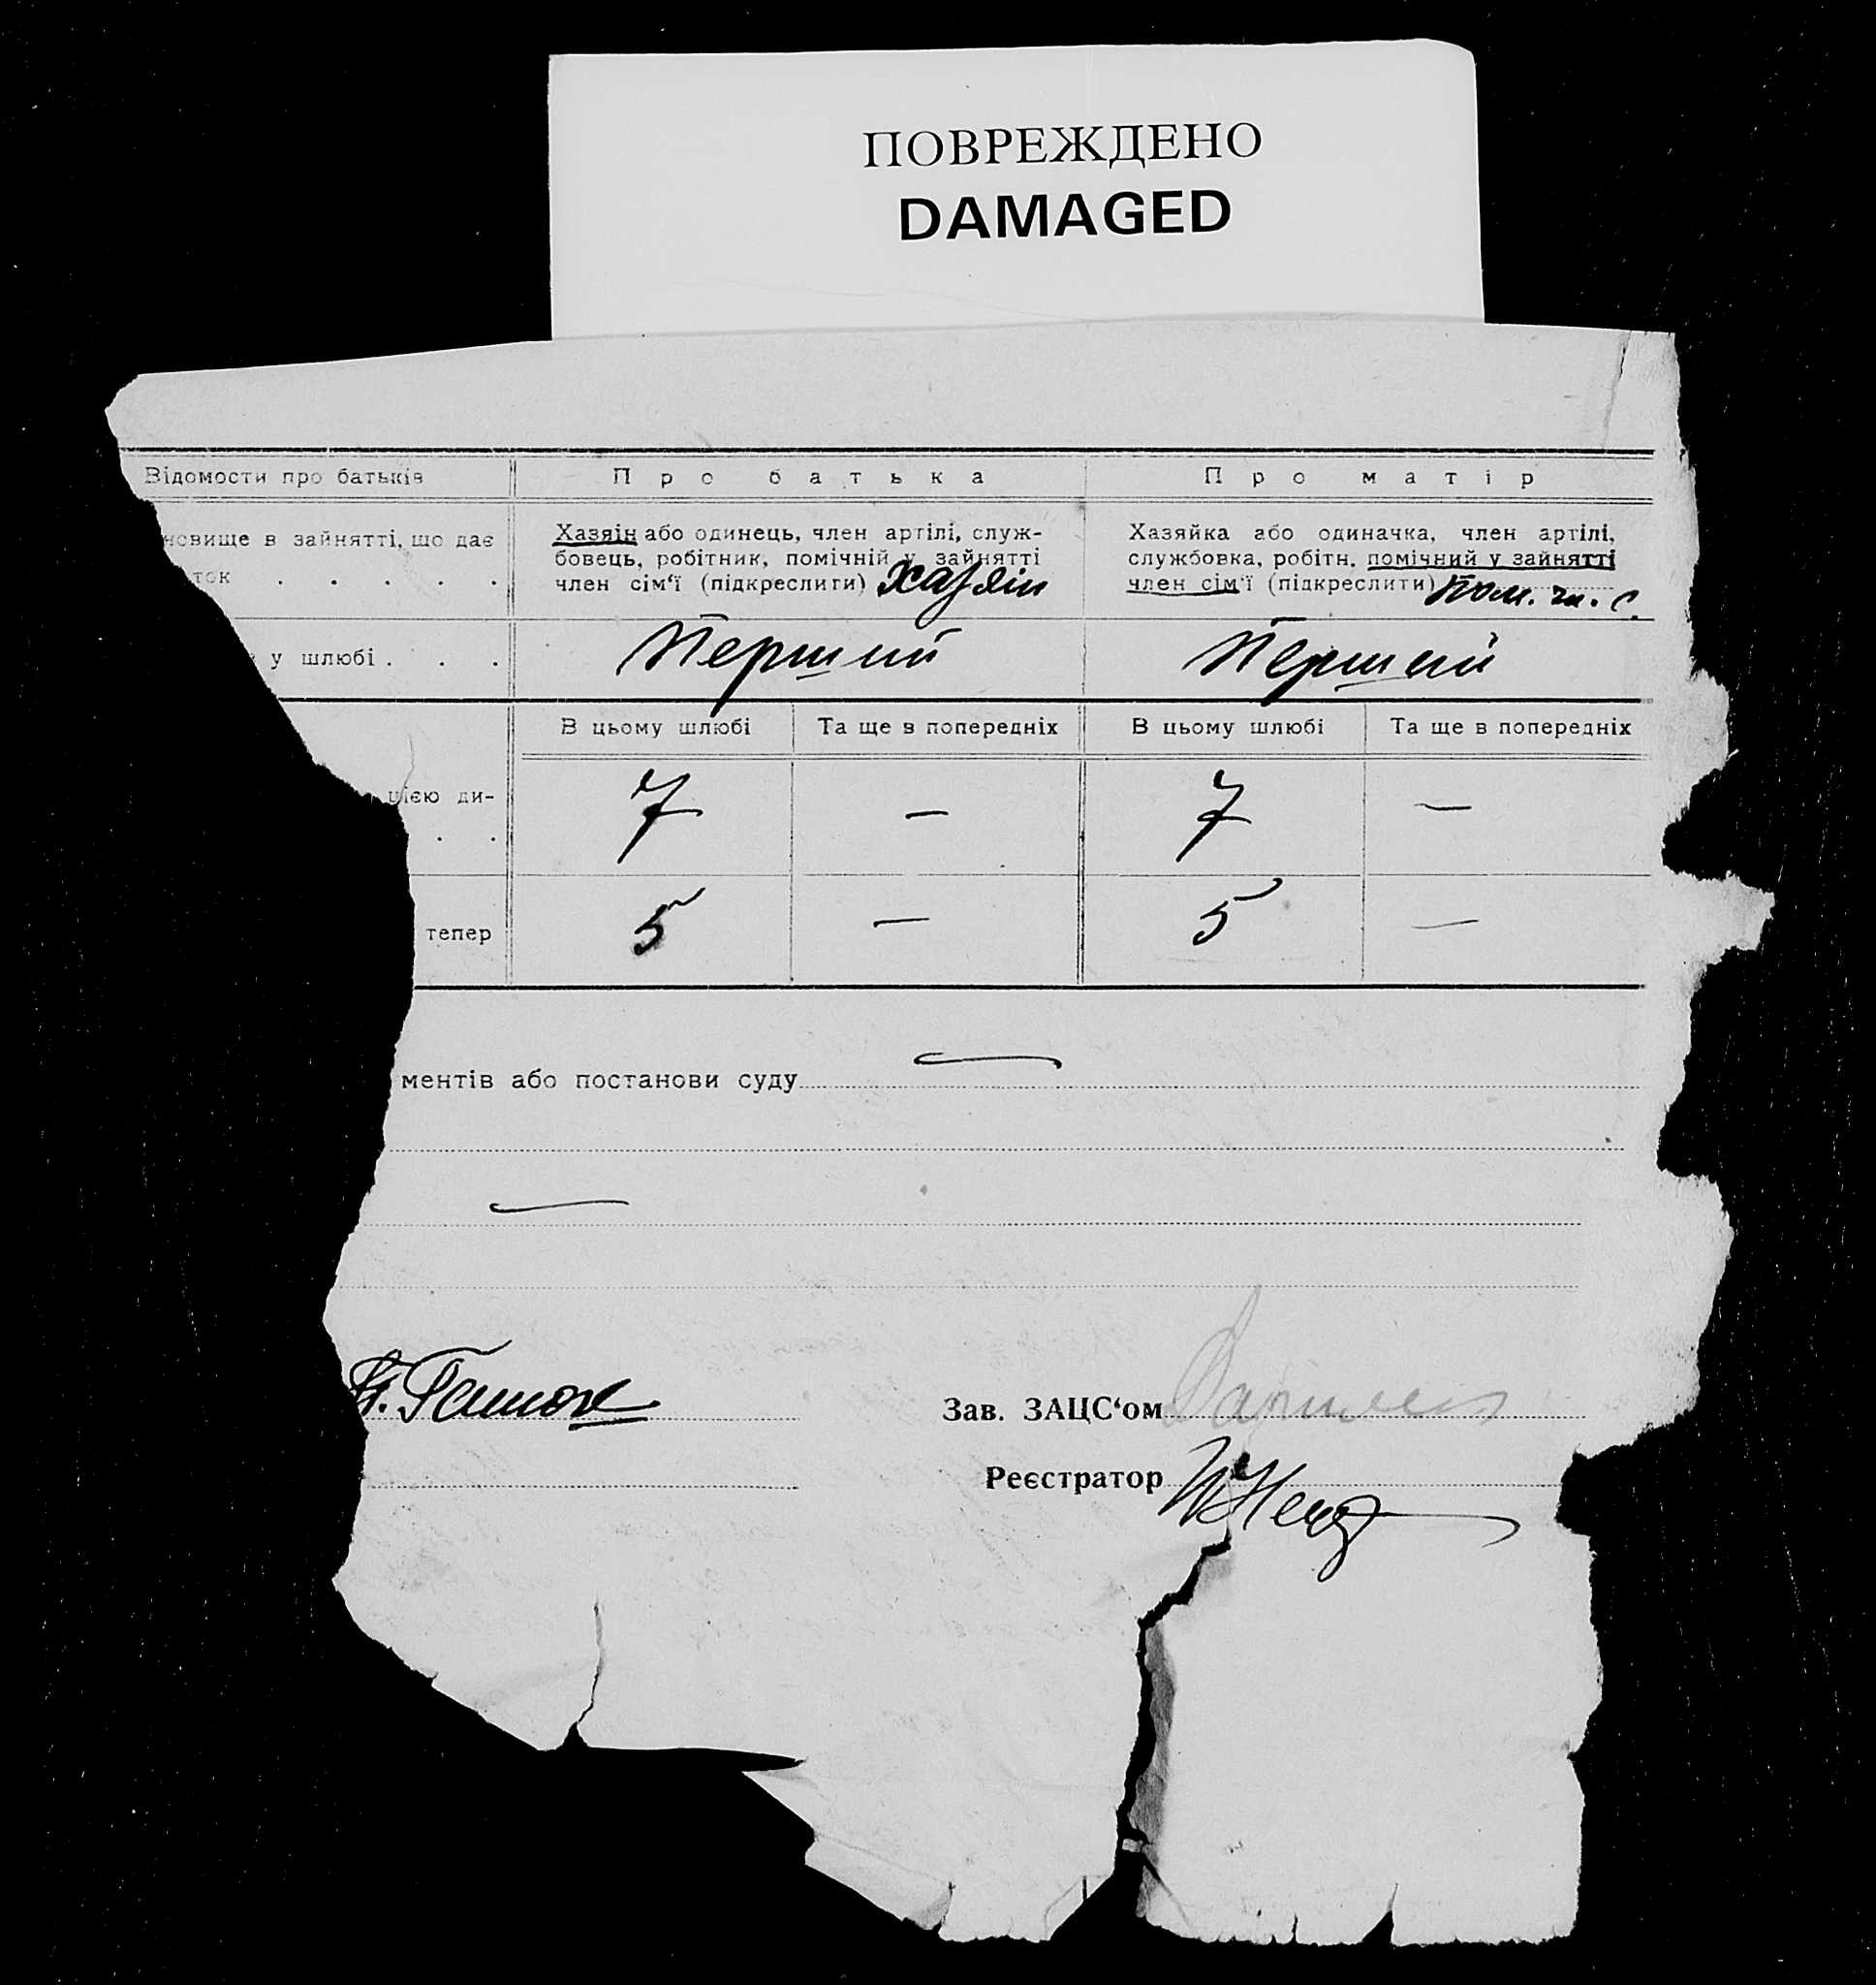 ПОВРЕЖДЕНО
DAMAGED
Відомости про батьків
Про батька
Про матір
новище в зайнятті, що дає
ток . . . . .
Хазяін або одинець, член артілі, служ-
бовець, робітник, помічній у зайнятті
член сім'ї (підкреслити) хазяін
Хазяйка або одиначка, член артілі,
службовка, робітн. помічний у зайнятті
член сім'ї (підкреслити) пом. чл. с.
у шлюбі . . .
Перший
Перший
В цьому шлюбі
Та ще в попередніх
В цьому шлюбі
Та ще в попередніх
цією ди-
. .
7
—
7
—
тепер
5
—
5
—
ментів або постанови суду —
—
Зав. ЗАЦС'ом
Реєстратор